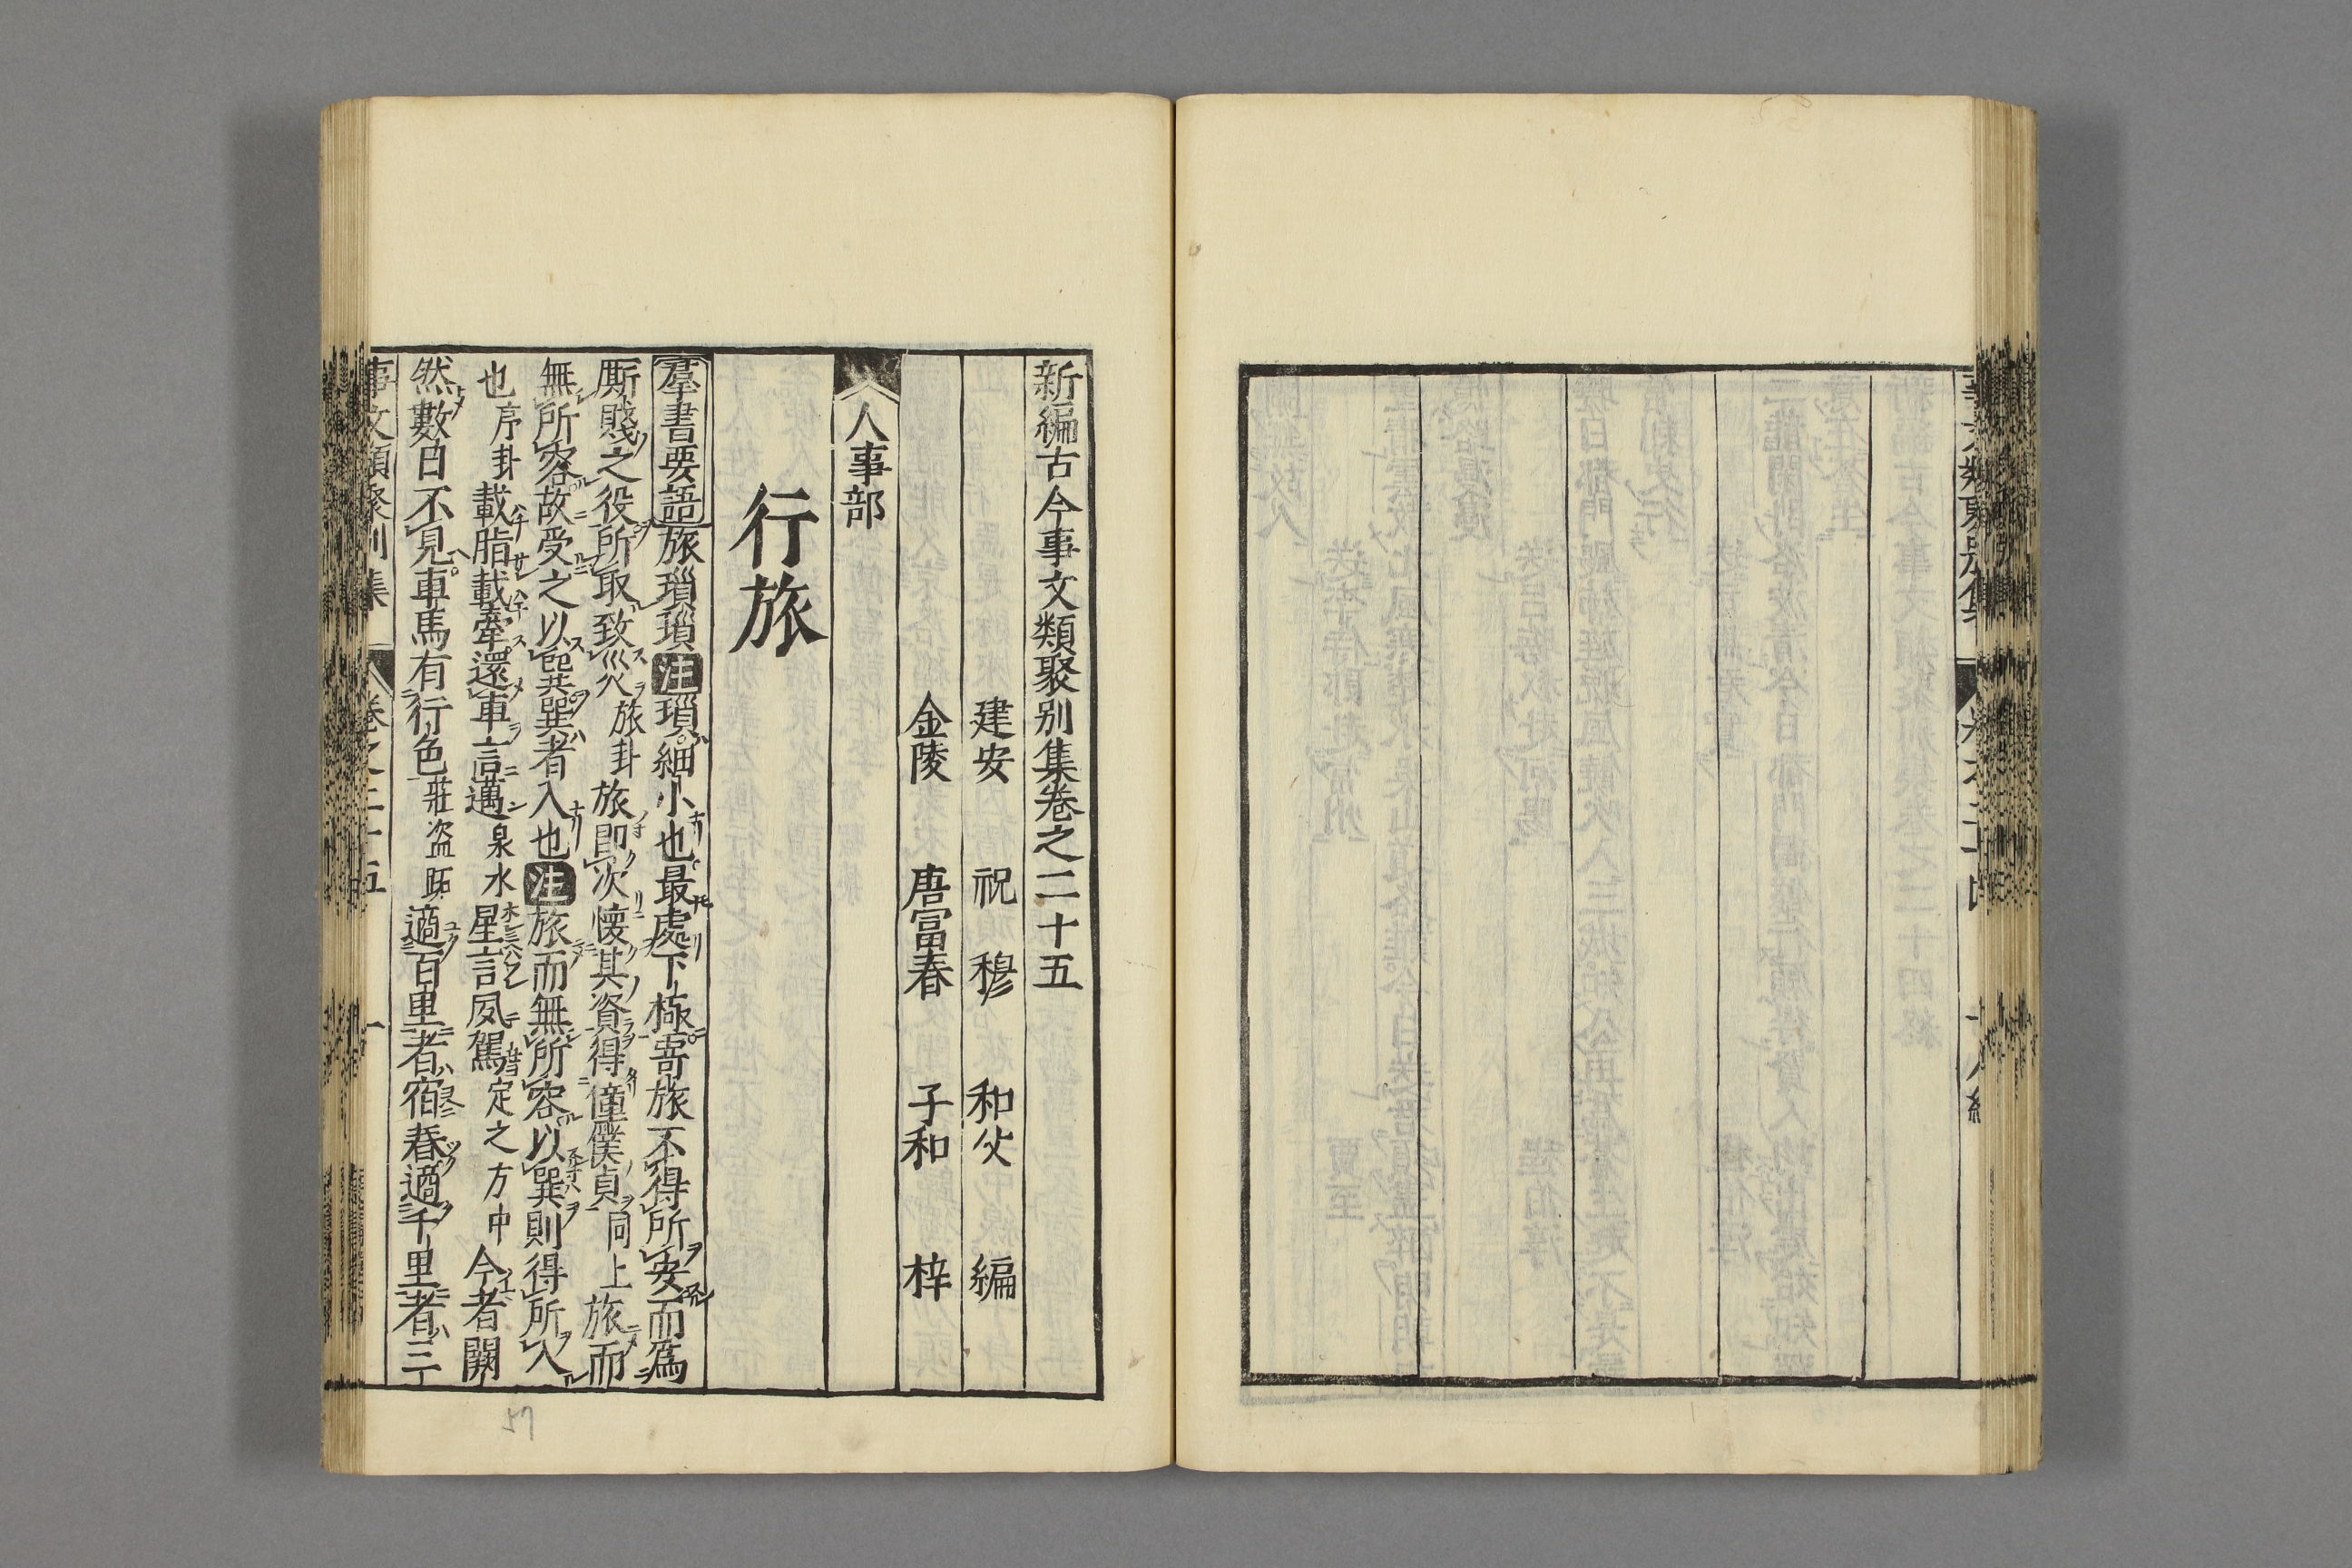 新編古今事文類聚别集卷之二十五
建安 祝 穆 和父 編
金陵 唐富春 子和 梓
人事部
行旅
羣書要語旅瑣瑣注瑣細小也最處下極寄旅不得所安而爲
厮賤之役所取致災旅卦旅即次懐其資得僮僕貞同上旅而
無所容故受之以巽巽者入也注旅而無所容以巽則得所入
也序卦載脂載舝還車言邁泉水星言夙駕定之方中今者闕
然數日不見車馬有行色莊盗跖適百里者宿舂適千里者三
事文類聚别集 卷之二十五 一
57